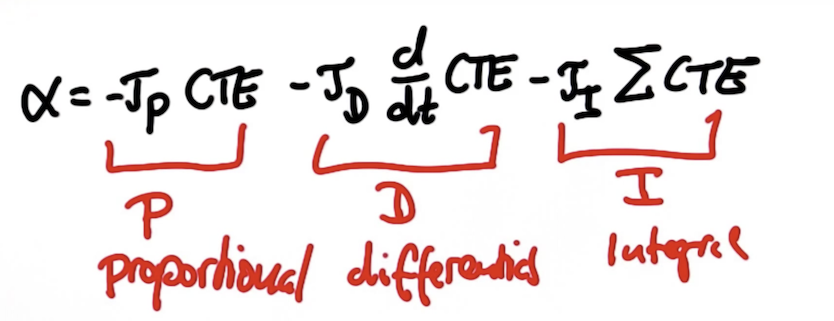 α = -τ_P CTE - τ_D d/dt CTE - τ_I Σ CTE
P D I
proportional differential Integral